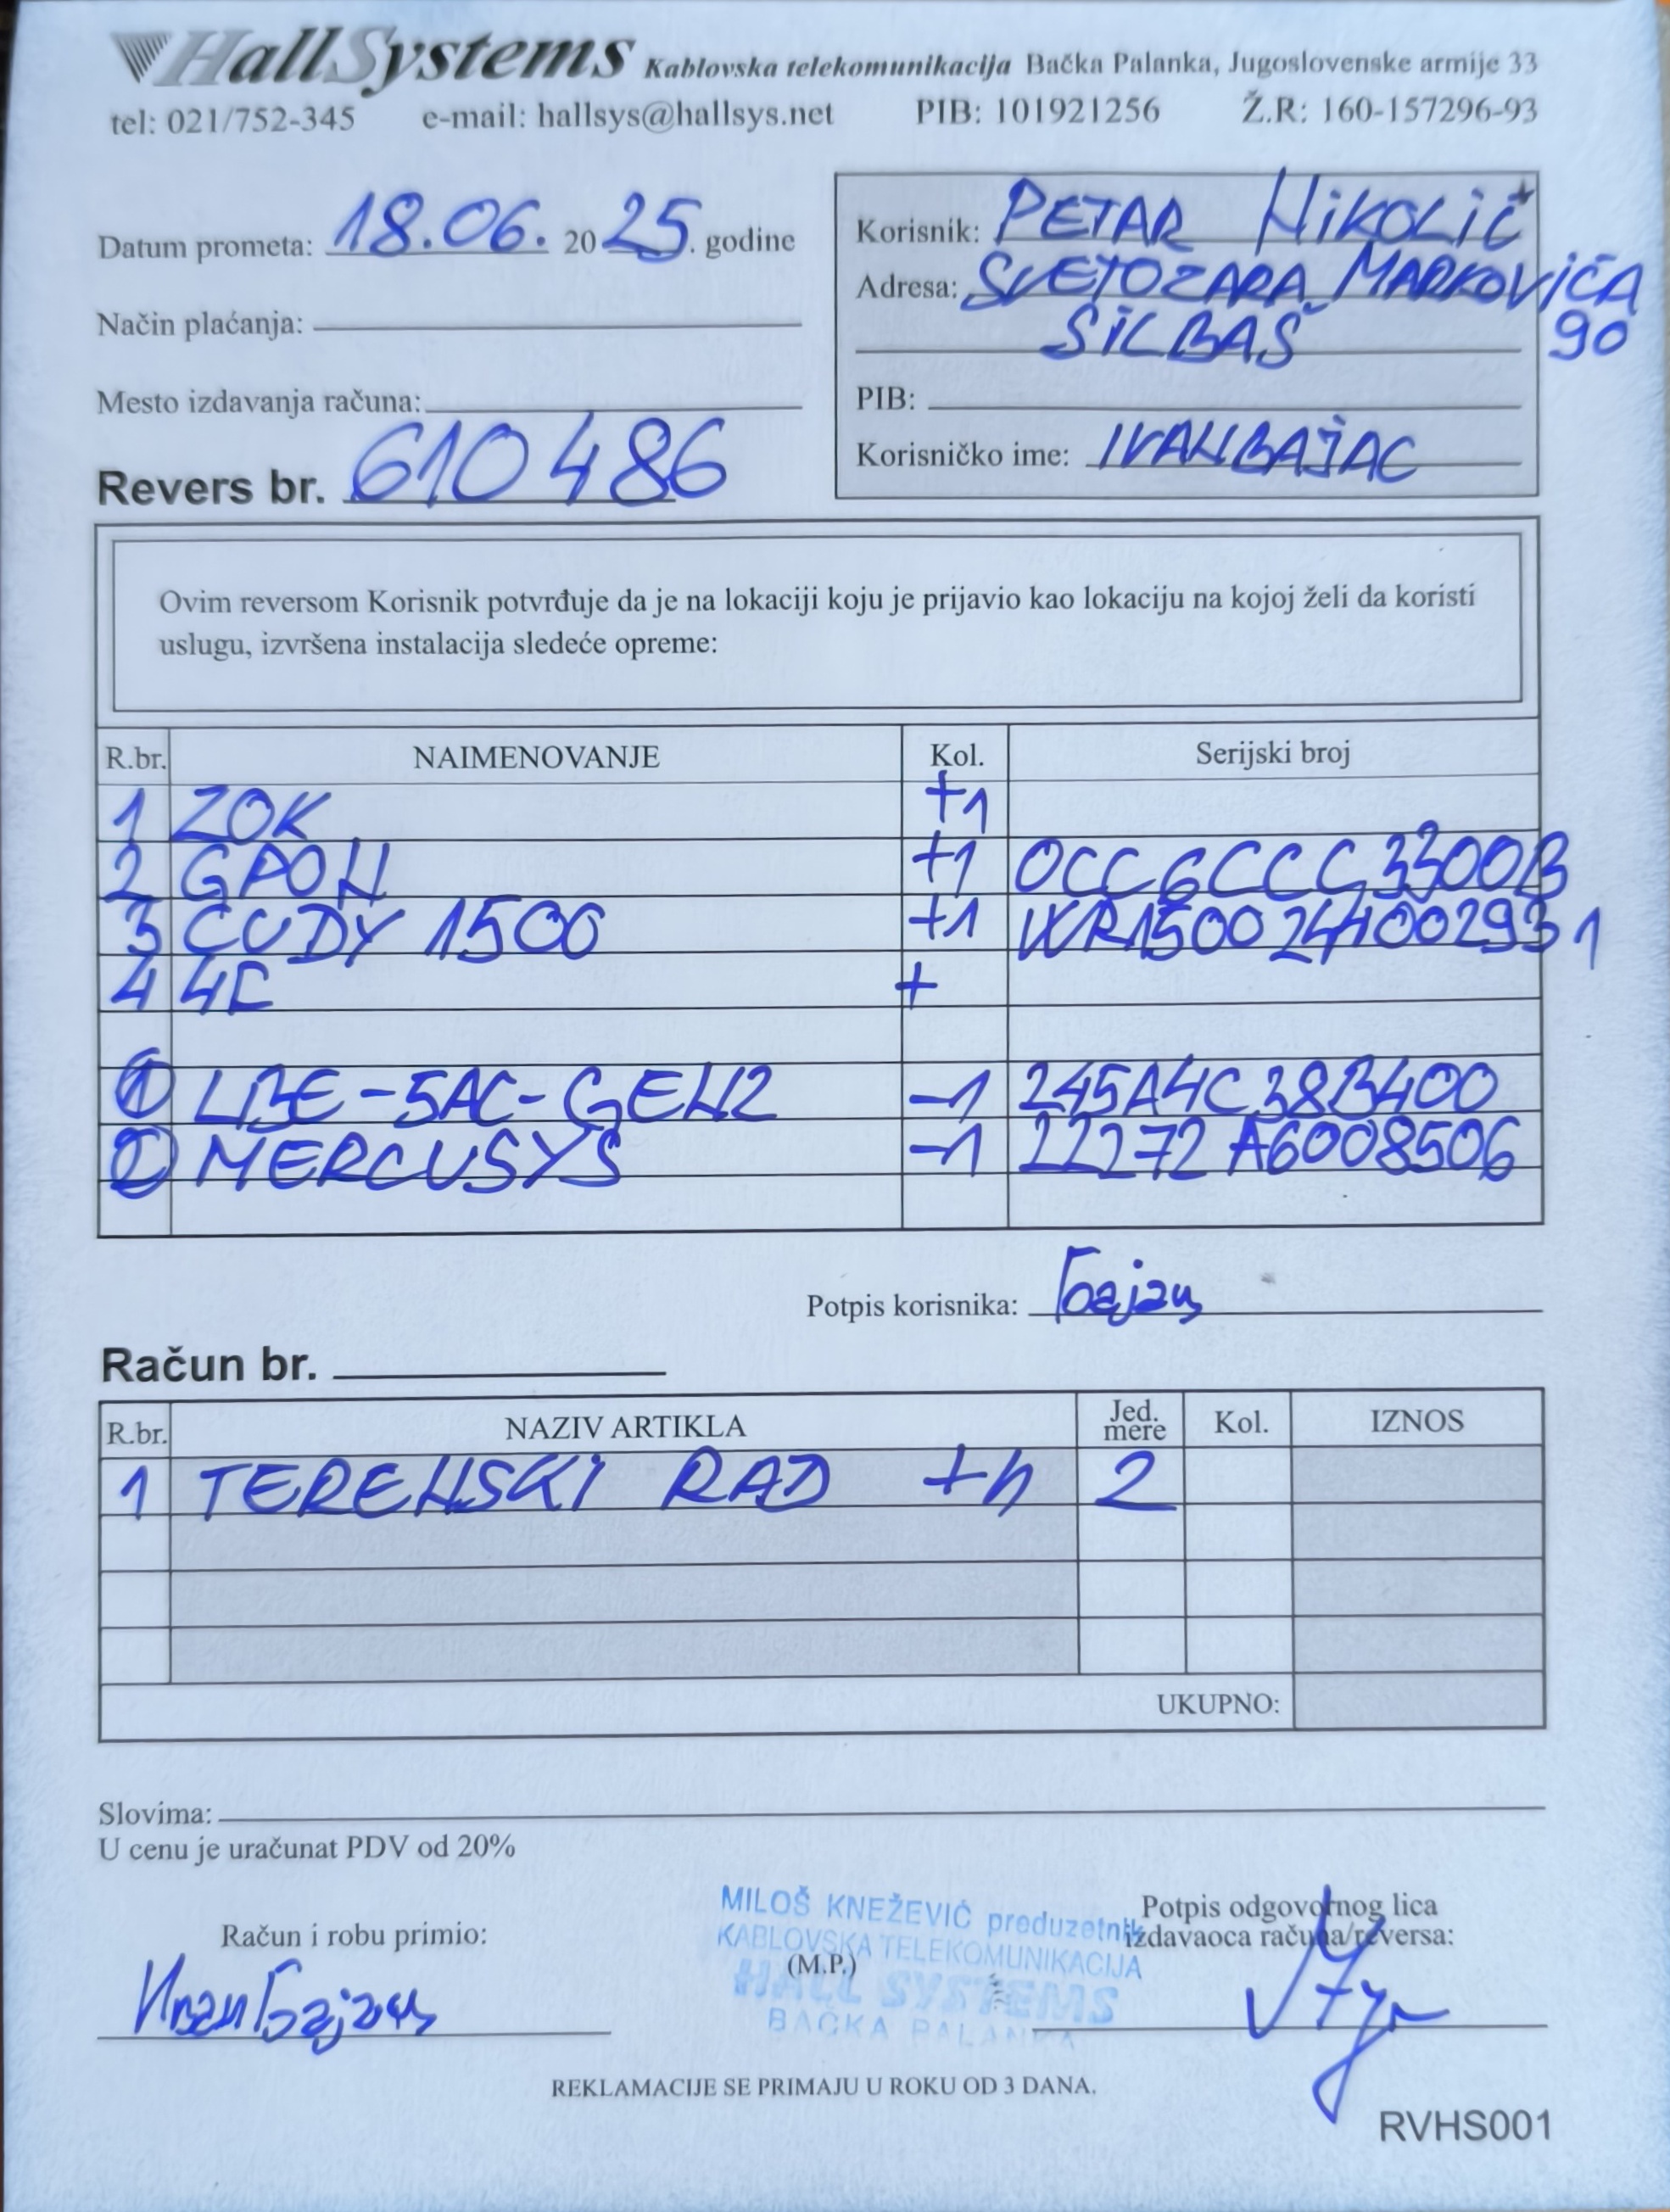 HallSystems Kablovska telekomunikacija Bačka Palanka, Jugoslovenske armije 33
tel: 021/752-345 e-mail: hallsys@hallsys.net PIB: 101921256 Ž.R: 160-157296-93
Datum prometa: 18.06. 2025. godine
Način plaćanja:
Mesto izdavanja računa:
Revers br. 610486
Korisnik: PETAR NIKOLIĆ
Adresa: SVETOZARA MARKOVIĆA
SILBAŠ 90
PIB:
Korisničko ime: IVANBAJAC
Ovim reversom Korisnik potvrđuje da je na lokaciji koju je prijavio kao lokaciju na kojoj želi da koristi
uslugu, izvršena instalacija sledeće opreme:
R.br. NAIMENOVANJE Kol. Serijski broj
1 ZOK +1
2 GPON +1 0CC6CCC3300B
3 CUDY 1500 +1 WR1500244002931
4 4C +
1 LBE-5AC-GEN2 -1 245A4C38B400
2 MERCUSYS -1 22272A6008506
Potpis korisnika: Бајац
Račun br.
R.br. NAZIV ARTIKLA Jed. mere Kol. IZNOS
1 TERENSKI RAD +h 2
UKUPNO:
Slovima:
U cenu je uračunat PDV od 20%
Račun i robu primio:
Иван Бајац
MILOŠ KNEŽEVIĆ preduzetnik
KABLOVSKA TELEKOMUNIKACIJA
(M.P.)
HALL SYSTEMS
BAČKA PALANKA
Potpis odgovornog lica
izdavaoca računa/reversa:
REKLAMACIJE SE PRIMAJU U ROKU OD 3 DANA.
RVHS001